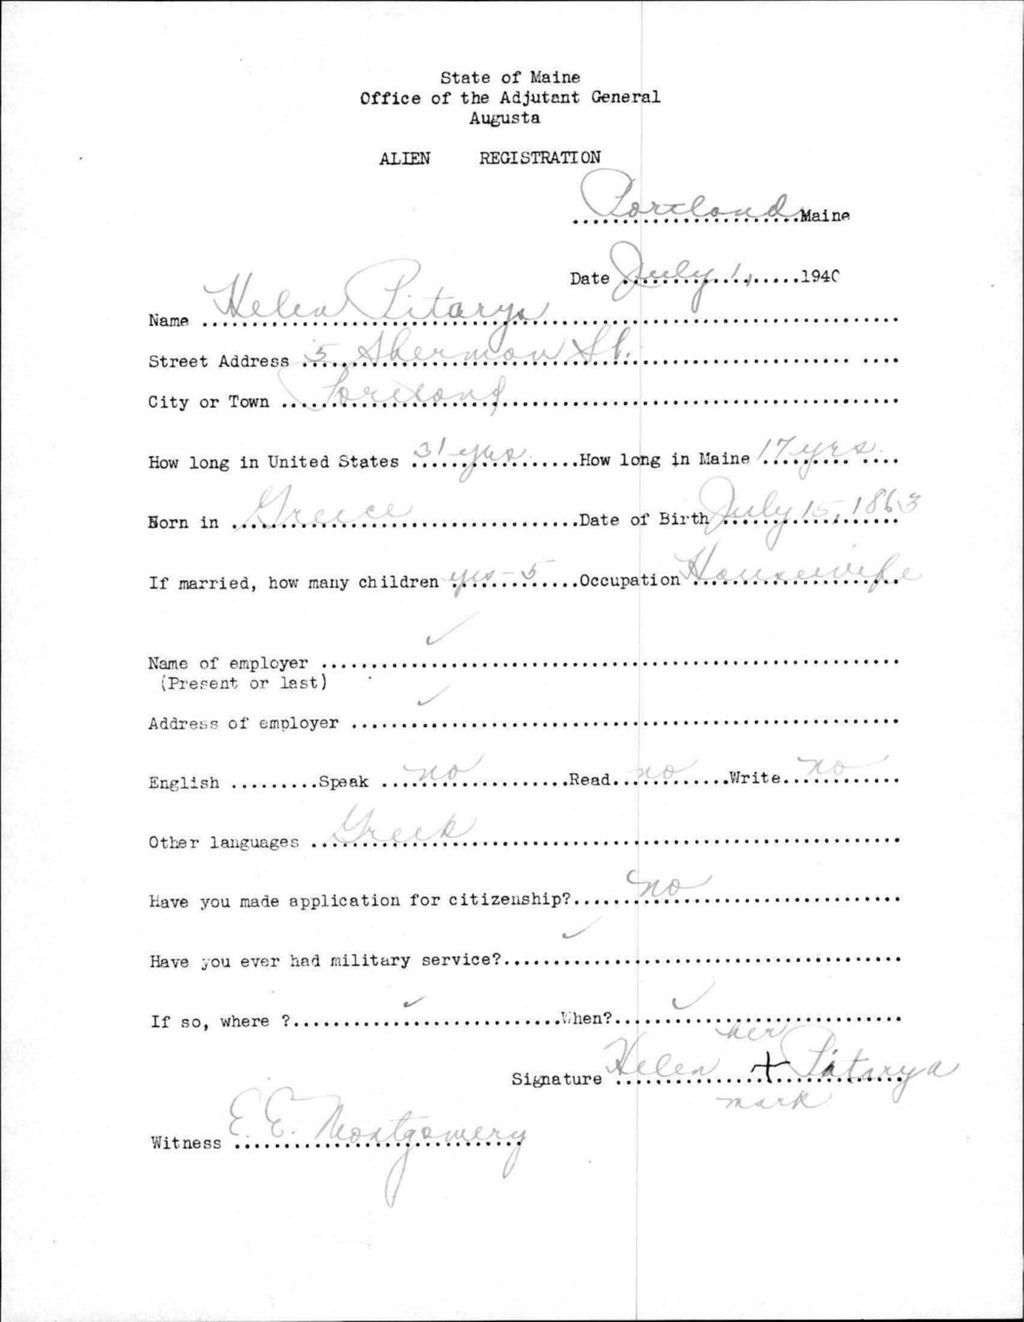 State of Maine
Office of the Adjutant General
Augusta
ALIEN REGISTRATION
Portland Maine
Date July 1, 1940
Name Helen Pitarys
Street Address 5 Sherman St.
City or Town Portland
How long in United States 31 yrs. How long in Maine 17 yrs.
Born in Greece Date of Birth July 15, 1863
If married, how many children yes - 5 Occupation Housewife
Name of employer ✓
(Present or last)
Address of employer ✓
English Speak no Read no Write no
Other languages Greek
Have you made application for citizenship? no
Have you ever had military service? ✓
If so, where ? ✓ When? ✓
her
Signature Helen + Pitarya
mark
Witness E. E. Montgomery